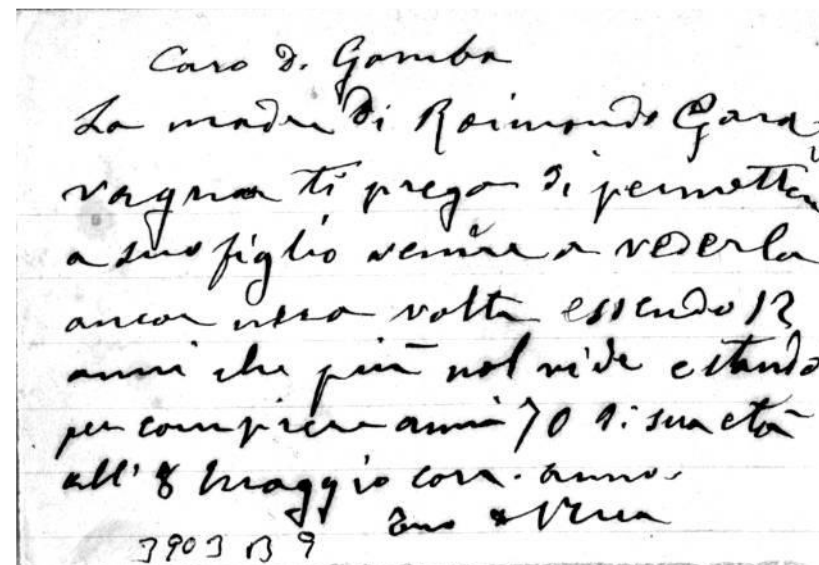 Caro D. Gamba
La madre di Raimondo Gara-
vagna ti prega di permettere
a suo figlio venire a vederla
ancor una volta essendo 12
anni che più nol vide e stando
per compiere anni 70 di sua età
all' 8 Maggio corr. anno.
3903 B 9